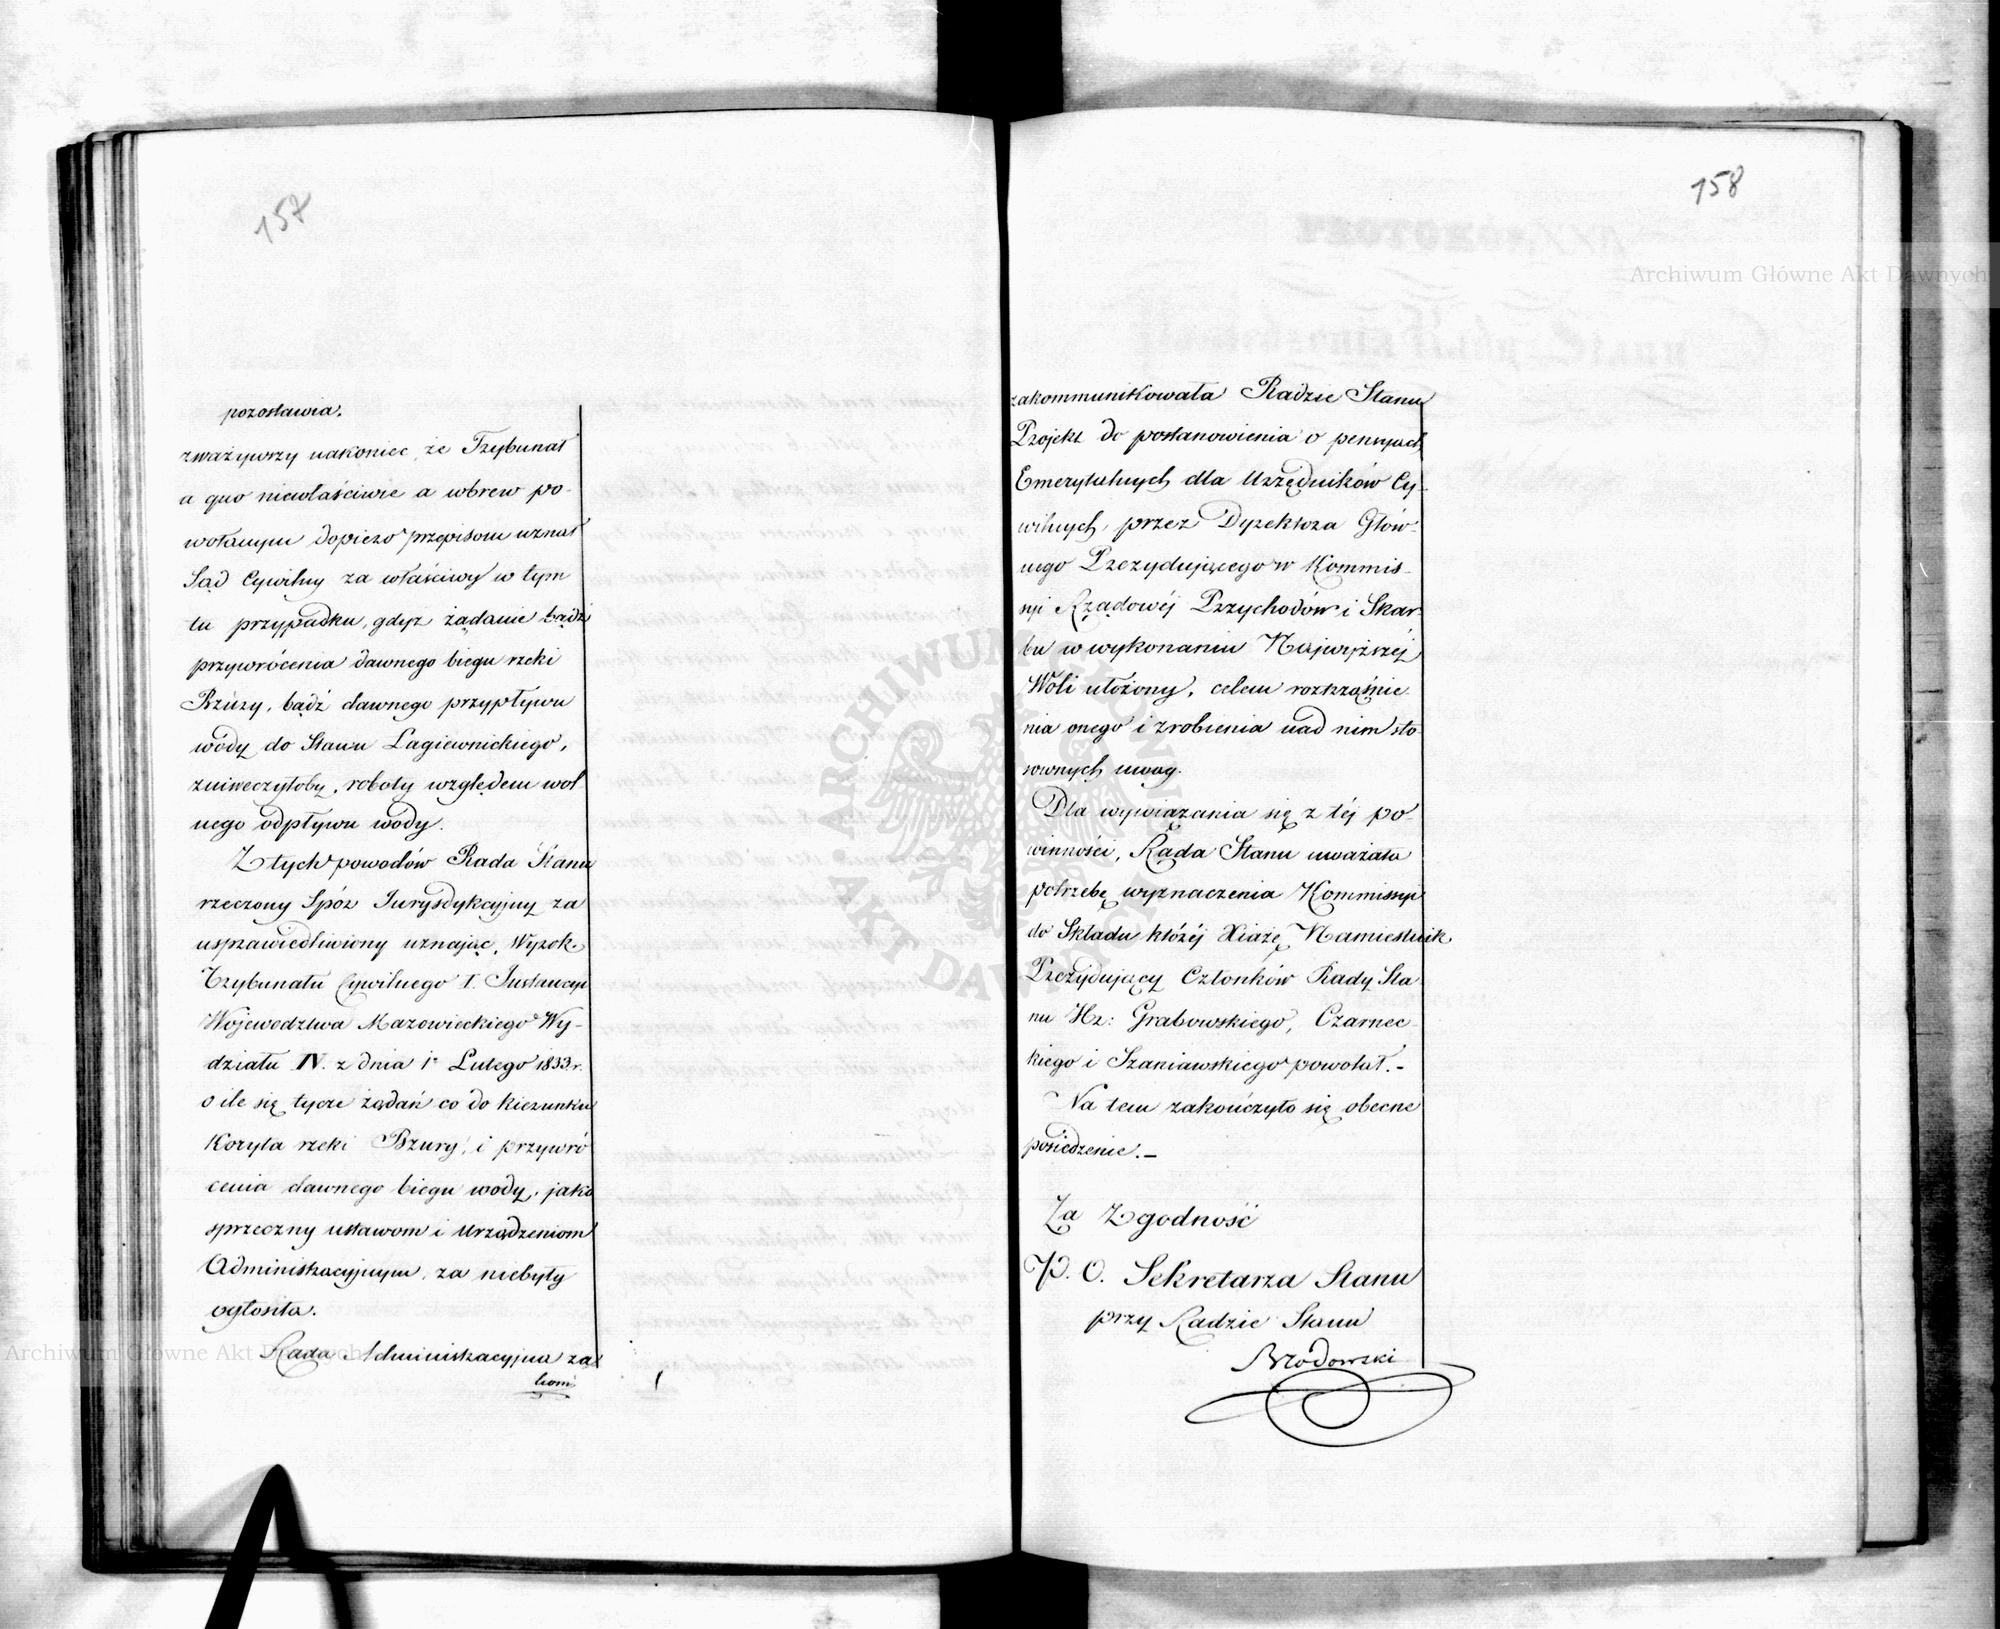 157
pozostawia.
zważywszy nakoniec, że Trybunał
a quo niewłaściwie a wbrew po-
wołanym dopiero przepisom uznał
Sąd Cywilny za właściwy w tym
tu przypadku, gdyż żądanie bądź
przywrócenia dawnego biegu rzeki
Bzury, bądź dawnego przypływu
wody do Stawu Łagiewnickiego,
zniweczyłoby, roboty względem wol
nego odpływu wody.
Z tych powodów Rada Stanu
rzeczony Spór Jurysdykcyjny za
usprawiedliwiony uznając, Wyrok
Trybunału Cywilnego I. Instancyi
Województwa Mazowieckiego Wy-
działu IV. z dnia 1º Lutego 1833 r.
o ile się tycze żądań co do kierunku
Koryta rzeki Bzury, i przywró
cenia dawnego biegu wody, jako
sprzeczny ustawom i Urządzeniom
Administracyjnym, za niebyły
ogłosiła.
Rada Administracyjna za
kom:
158
zakommunikowała Radzie Stanu
Projekt do postanowienia o pensyach
Emerytalnych dla Urzędników Cy-
wilnych, przez Dyrektora Głów-
nego Prezydującego w Kommis-
syi Rządowéj Przychodów i Skar
bu w wykonaniu Najwyższéj
Woli ułożony, celem roztrząśnie
nia onego i zrobienia nad nim sto
sownych uwag.
Dla wywiązania się z téj po-
winności, Rada Stanu uważała
potrzebę wyznaczenia Kommissyi
do Składu któréj Xiążę Namiestnik
Prezydujący Członków Rady Sta
nu Hr: Grabowskiego, Czarnec-
kiego i Szaniawskiego powołał.-
Na tem zakończyło się obecne
posiedzenie.-
Za Zgodność
P. O. Sekretarza Stanu
przy Radzie Stanu
Brodowski
Archiwum Główne Akt Dawnych
Archiwum Główne Akt Dawnych
ARCHIWUM GŁÓWNE • AKT DAWNYCH •